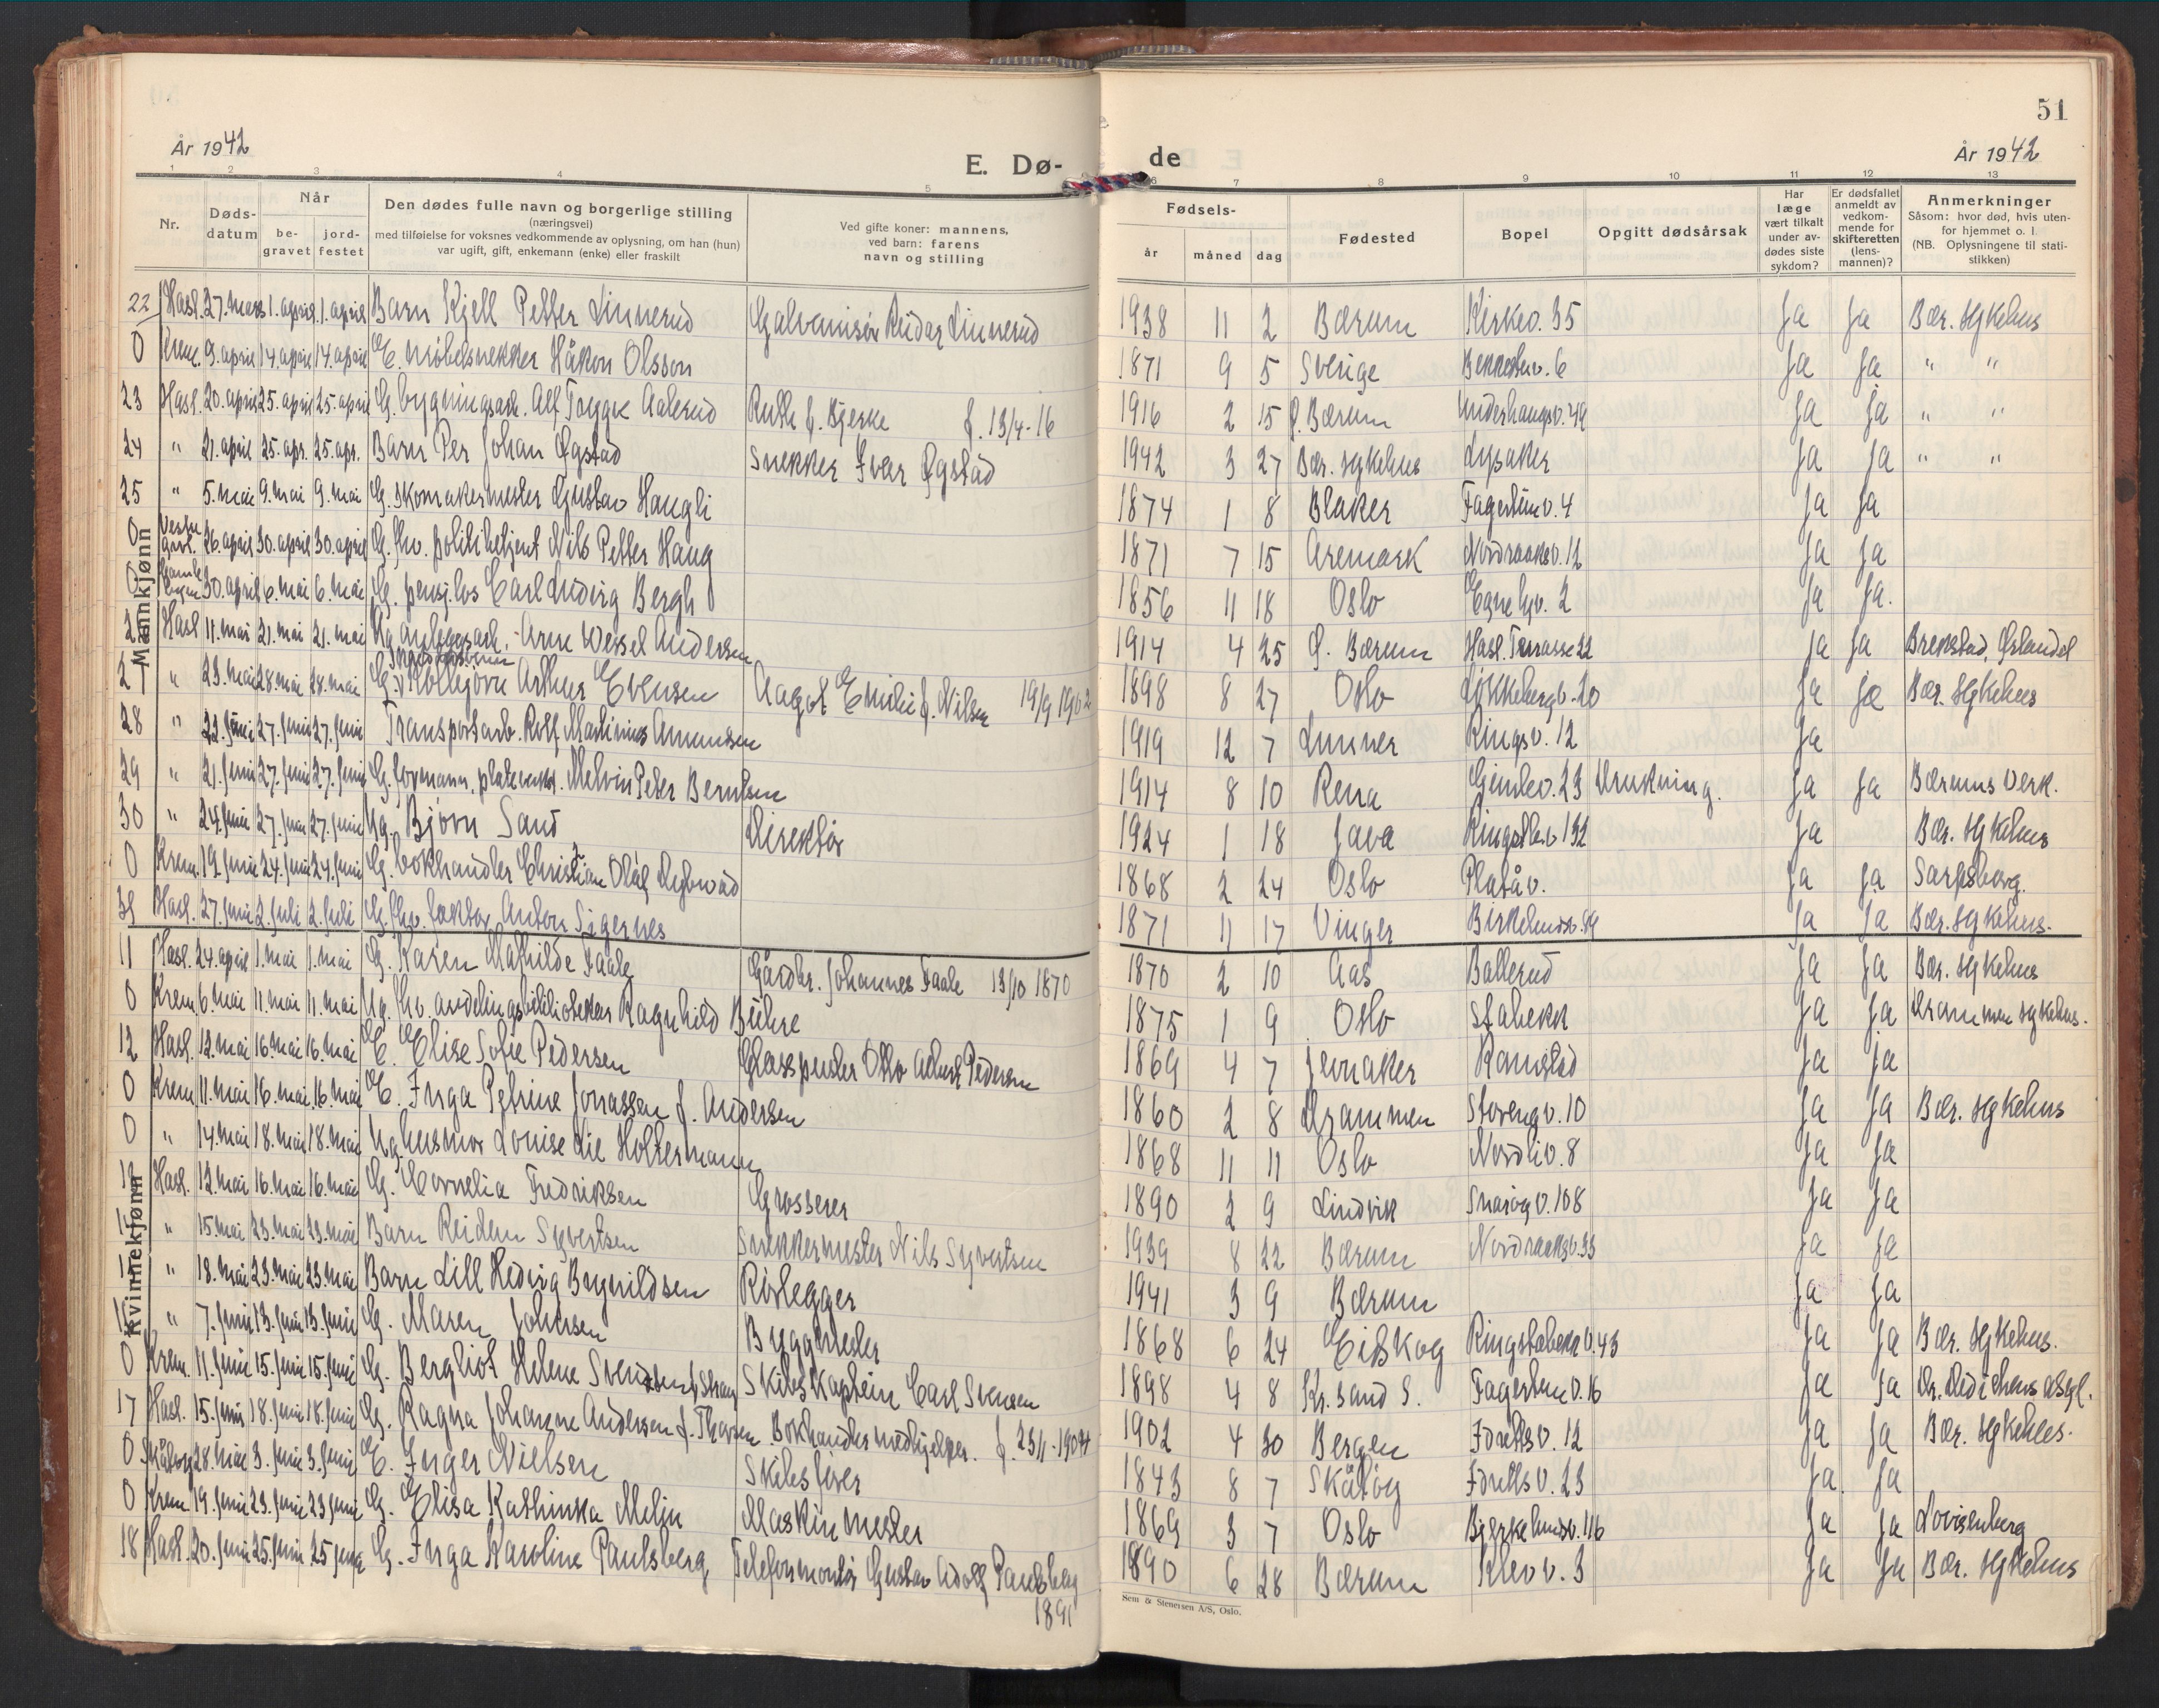 51
År 1942
E. Dø-
de
År 1942
1 2 3 4 5
6 7 8 9 10 11 12 13
Nr.
Døds-
datum
Når
be-
gravet
jord-
festet
Den dødes fulle navn og borgerlige stilling
(næringsvei)
med tilføielse for voksnes vedkommende av oplysning, om han (hun)
var ugift, gift, enkemann (enke) eller fraskilt
Ved gifte koner: mannens,
ved barn: farens
navn og stilling
Fødsels-
år
måned
dag
Fødested
Bopel
Opgitt dødsårsak
Har
læge
vært tilkalt
under av-
dødes siste
sykdom?
Er dødsfallet
anmeldt av
vedkom-
mende for
skifteretten
(lens-
mannen)?
Anmerkninger
Såsom: hvor død, hvis uten-
for hjemmet o. l.
(NB. Oplysningene til stati-
stikken)
Mannkjønn
22 Hasl. 27. mars 1. april 1. april Barn Kjell Petter Linnerud Galvanisør Reidar Linnerud 1938 11 2 Bærum Kirkev. 35 Ja Ja Bær. sykehus
0 Krem. 9. april 14 april 14 april E. møbelsnekker Håkon Olsson 1871 9 5 Sverige Ja Ja " "
23 Hasl. 20. april 25. april 25. april G. bygningsarb. Alf Trygge Aalerud Ruth f. Bjerke f. 13/4-16 1916 2 15 Ø. Bærum Underhaugsv. 49 Ja Ja " "
24 " 21. april 25. apr. 25. apr. Barn Per Johan Øgstad Snekker Iver Øgstad 1942 3 27 Bær. sykehus Lysaker Ja Ja " "
25 " 5. mai 9. mai 9. mai G. Skomakermester Gustav Haugli 1874 1 8 Blaker Fagerliinv. 4 Ja Ja
0 Vestre grvl. 26. april 30. april 30. april G. fhv. politibetjent Nils Petter Haug 1871 7 15 Aremark Nordraaksv. 12 Ja Ja
0 Gamle byen 30. april 6. mai 6. mai G. pensj. los Carl Ludvig Bergh 1856 11 18 Oslo Egnehjv. 2 Ja Ja.
26 Hasl 11. mai 21. mai 21. mai Ug anleggsarb. Arne Wessel Andersen 1914 4 25 Ø. Bærum Hasl. Terrasse 22 Ja Ja Brekstad, Ørlandet
27 " 23. mai 28. mai 28. mai G. Kolbjørn Arthur Evensen Aagot Emilie f. Nilsen 19/9 1902 1898 8 27 Oslo Løkkebergv. 20 Ja Ja Bær. sykehus
28 " 22. juni 27. juni 27. juni Transportarb. Rolf Martinius Amundsen 1919 12 7 Lunner Ringsv. 12 Ja
29 " 21. juni 27. juni 27. juni G. formann, plateverkst. Melvin Peter Berntsen 1914 8 10 Rena Gimlev. 23 Drukning. Ja Ja Bærums Verk.
30 " 24. juni 27. juni 27. juni Ug. Bjørn Sand Direktør 1924 1 18 Java Ringstabv 132 Ja Bær. sykehus
0 Krem. 19. juni 24. juni 24. juni G. bokhandler Christian Olaf Dybwad 1868 2 24 Oslo Platåv. Ja Ja Sarpsborg.
31 Hasl. 27. juni 2. juli 2. juli G. fhv. faktor Anton Sigernes 1871 11 17 Vinger Birkelundsv. 99 Ja Ja Bær. sykehus.
Kvinnekjønn
11 Hasl. 24. april 1. mai 1. mai G. Karen Mathilde Faale Gårdbr. Johannes Faale 13/10 1870 1870 2 10 Aas Ballerud Ja Ja Bær. sykehus
0 Krem. 6. mai 11. mai 11. mai Ug. fhv. avdelingsbibliotekar Ragnhild Bühre 1875 1 9 Oslo Stabekk Ja Ja Drammen sykehus.
12 Hasl. 12. mai 16. mai 16. mai E. Elise Sofie Pedersen Glasspuster Otto Albert Pedersen 1869 4 7 Jevnaker Ramstad Ja Ja
0 Krem 11. mai 16. mai 16. mai E. Inga Petrine Jonassen f. Andersen 1860 2 8 Drammen Storengv. 10 Ja Ja Bær. sykehus
0 " 14. mai 18. mai 18. mai Ug. husmor Louise Lie Holtermann 1868 11 11 Oslo Nordliv. 8 Ja Ja
13 Hasl. 12. mai 16. mai 16. mai G. Cornelia Fredriksen Grosserer 1890 2 9 Lindvik Snarøyv. 108 Ja Ja
14 " 15. mai 23. mai 23. mai Barn Reidun Syvertsen Snekkermester Nils Syvertsen 1939 8 22 Bærum Nordraaksv. 33 Ja Ja
15 " 18. mai 23. mai 23. mai Barn Lill Hedvig Brynildsen Rørlegger 1941 3 9 Bærum Ja Ja
16 " 7. juni 13. juni 13. juni G. Maren Johnsen Byggmester 1868 6 24 Eidskog Ringstabekkv. 43 Ja Ja Bær. sykehus.
0 Krem. 11. juni 15. juni 15. juni G. Bergliot Helene Svendsen f. Skibskaptein Carl Svensen 1898 4 8 Kr. sand S. Fagertunv. 16 Ja Ja
17 Hasl. 15. juni 18. juni 18. juni G. Ragna Johanne Andersen f. Thorsen Bokhandlermedhjelper. f. 23/1-1904 1902 4 30 Bergen Idrettsv. 12 Ja Ja Bær. sykehus.
0 Skåtøy 28. mai 3. juni 3. juni E. Inger Nielsen Skibsfører 1843 8 7 Skåtøy Idrettsv. 23 Ja Ja
0 Krem. 19. juni 23. juni 23 juni G. Elisa Kathinka Melin Maskinmester 1869 3 7 Oslo Bjerkelundsv. 116 Ja Ja Lovisenberg
18 Hasl. 20. juni 25. juni 25 juni G. Inga Karoline Paulsberg Telefonmontør Gustav Adolf Paulsberg 1891 1890 6 28 Bærum Klevv. 3 Ja Ja Bær. sykehus
Sem & Stenersen A/S, Oslo.